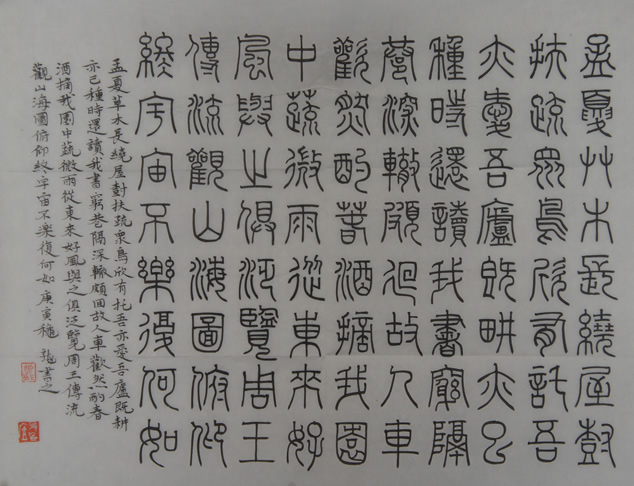 孟夏艸木長繞屋尌
扶疏眾鳥欣有託吾
亦愛吾廬既耕亦已
種時還讀我書窮巷
隔深轍頗迴故人車
歡然酌春酒摘我園
中蔬微雨從東來好
風與之俱泛覽周王
傳流觀山海圖俯仰
終宇宙不樂復何如
孟夏草木長繞屋尌扶疏眾鳥欣有托吾亦愛吾廬既耕
亦已種時還讀我書窮巷隔深轍頗回故人車歡然酌春
酒摘我園中蔬微雨從東來好風與之俱泛覽周王傳流
觀山海圖俯仰終宇宙不樂復何如 庚寅穐 龍書之